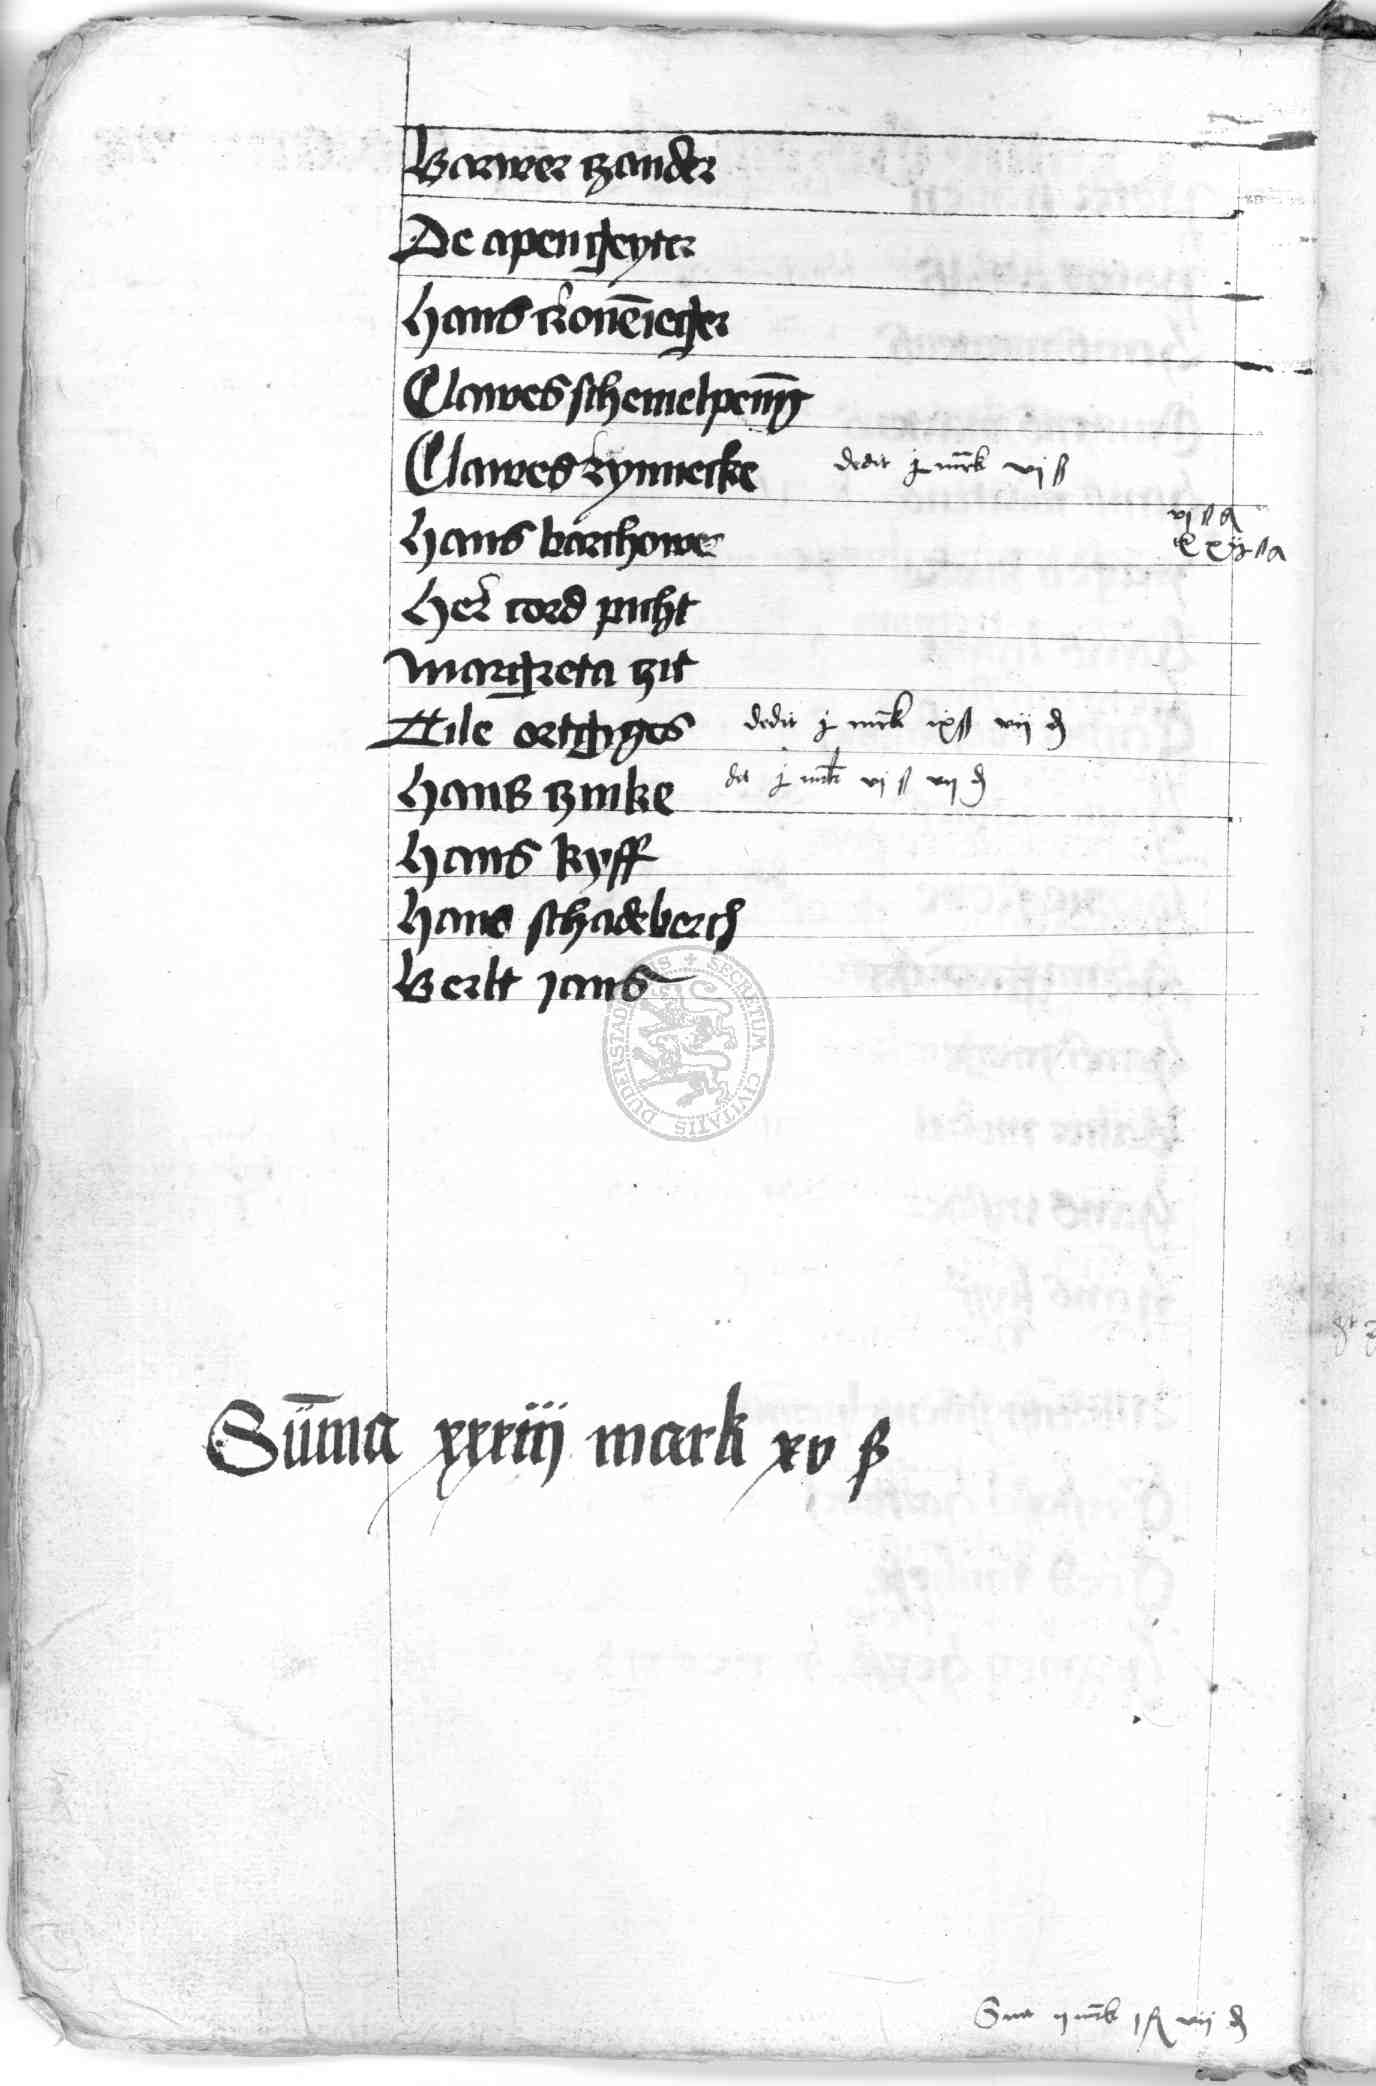 Barwer tzander
De apengeyter
Hans kronēieger
Clawes schemelpenīg
Clawes rynnecke dedit j mrk vj ß
Hans barchowe vj ß
Her cord picht
Margreta tzit
Tile ortgyges dedit j mrk ix ß vij d
Hans tzinke dt j mrk vj ß vij d
Hans kyff
Hans schadeberch
Berlt jans
SECRETUM CIVITATIS DUDERSTADENSIS
Sūma xxxiij mark xv ß
Sūa ij mrk j ß vij d